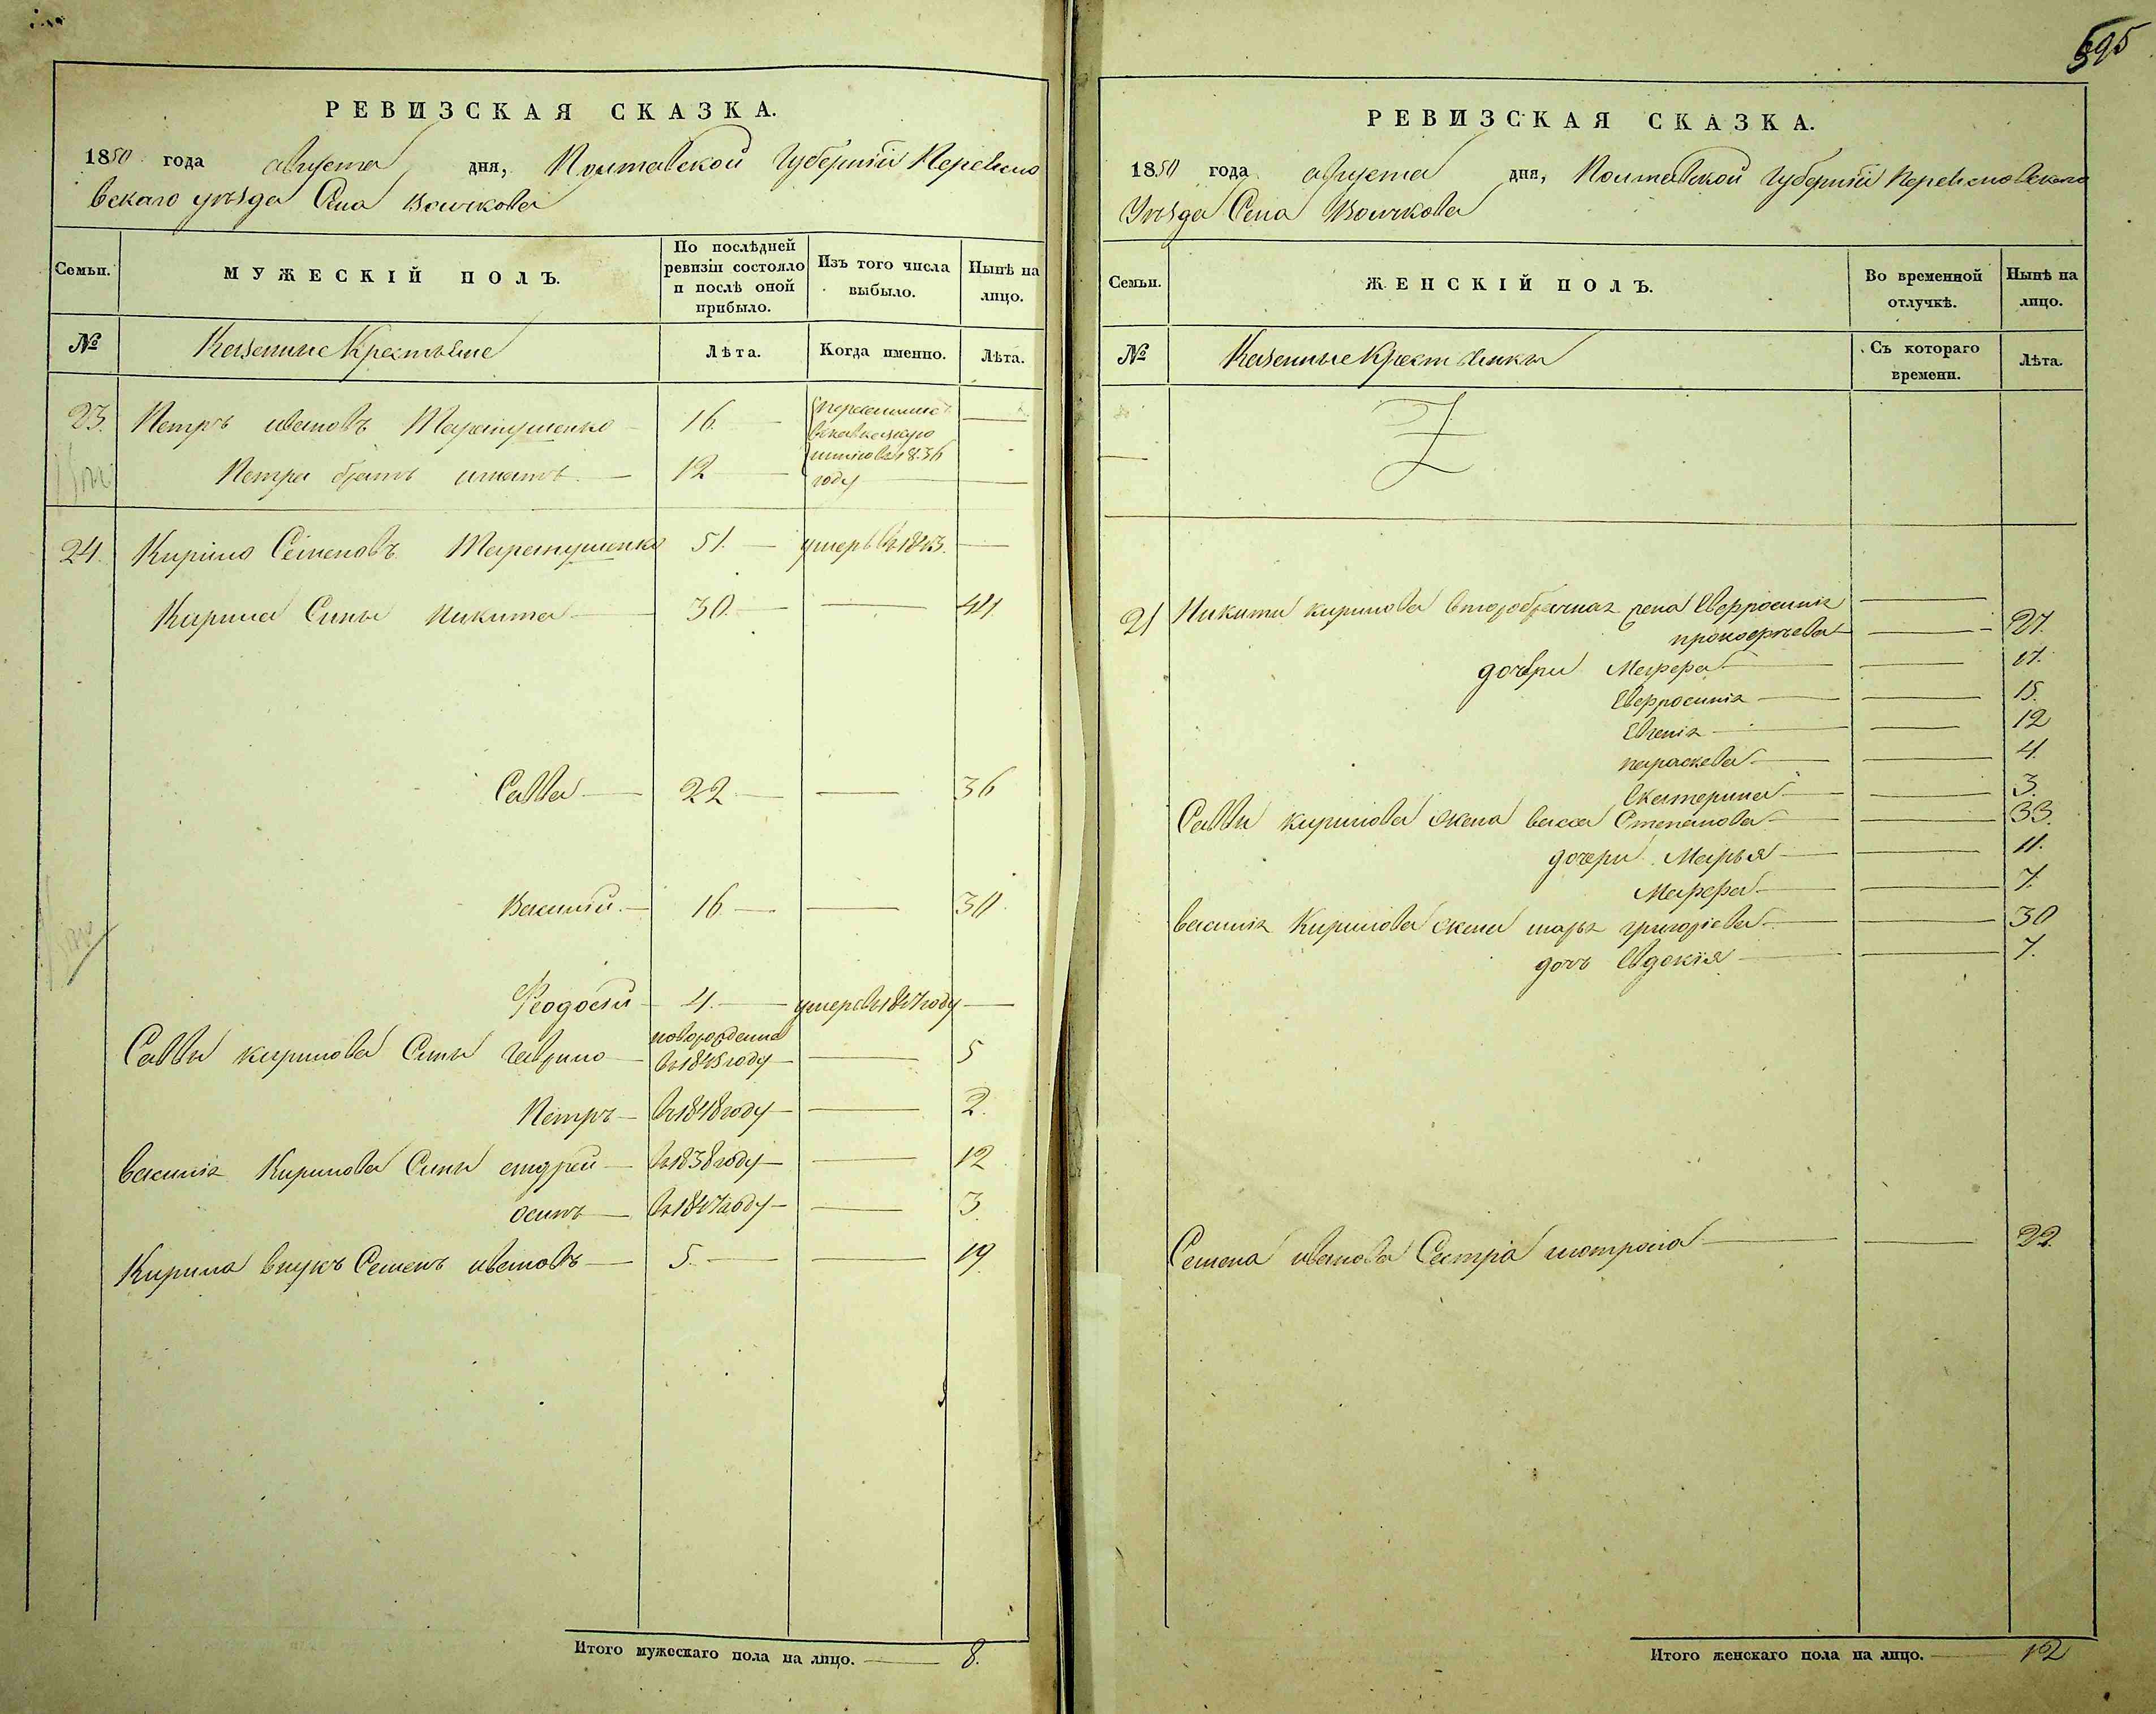 595
РЕВИЗСКАЯ СКАЗКА.
1850 года августа дня, Полтавской Губерніи Переясло
вскаго уѣзда Села Войткова
Семьи.
МУЖЕСКІЙ ПОЛЪ.
По послѣдней ревизіи состояло и послѣ оной прибыло.
Изъ того числа выбыло.
Нынѣ на лицо.
№ Казенные Крестьяне Лѣта. Когда именно. Лѣта.
23. Петръ ивановъ 16.
Петра братъ игнатъ 12 1836
году
24. Кирило Семеновъ 51. умеръ въ 1843.
Кирила Сыны Никита 30. 44
Савва 22 36
Василій 16 30
Феодосій 4. умеръ въ 1847 году
Саввы кирилова Сыны гаврило новорожденна
въ 1845 году 5
Петръ въ 1848 году 2.
василія Кирилова Сыны андрей въ 1838 году 12
осипъ въ 1847 году 3.
Кирила внукъ Семенъ ивановъ 5. 19
Итого мужескаго пола на лицо. 8.
РЕВИЗСКАЯ СКАЗКА.
1850 года августа дня, Полтавской Губерніи Переясловскаго
Уѣзда Села Войткова
Семьи.
ЖЕНСКІЙ ПОЛЪ.
Во временной отлучкѣ.
Нынѣ на лицо.
№ Казенные Крестьянки Съ котораго времени. Лѣта.
24 Никиты кирилова второбрачная жена Евфросинія
прокофьева 27.
дочери Марфа 17.
Евфросинія 15.
Евгенія 12
параскева 4.
Екатерина 3.
Саввы кирилова жена васса Степанова 33.
дочери Марья 11.
Марфа 7.
василія Кирилова жена марья григорієва 30
дочь Евдокія 7.
Семена иванова Сестра мотрона 22.
Итого женскаго пола на лицо. 12